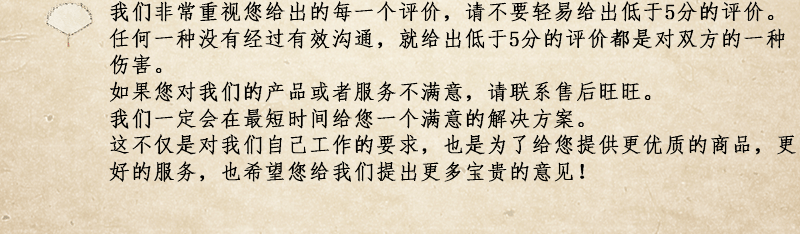 我们非常重视您给出的每一个评价，请不要轻易给出低于5分的评价。
任何一种没有经过有效沟通，就给出低于5分的评价都是对双方的一种
伤害。
如果您对我们的产品或者服务不满意，请联系售后旺旺。
我们一定会在最短时间给您一个满意的解决方案。
这不仅是对我们自己工作的要求，也是为了给您提供更优质的商品，更
好的服务，也希望您给我们提出更多宝贵的意见！